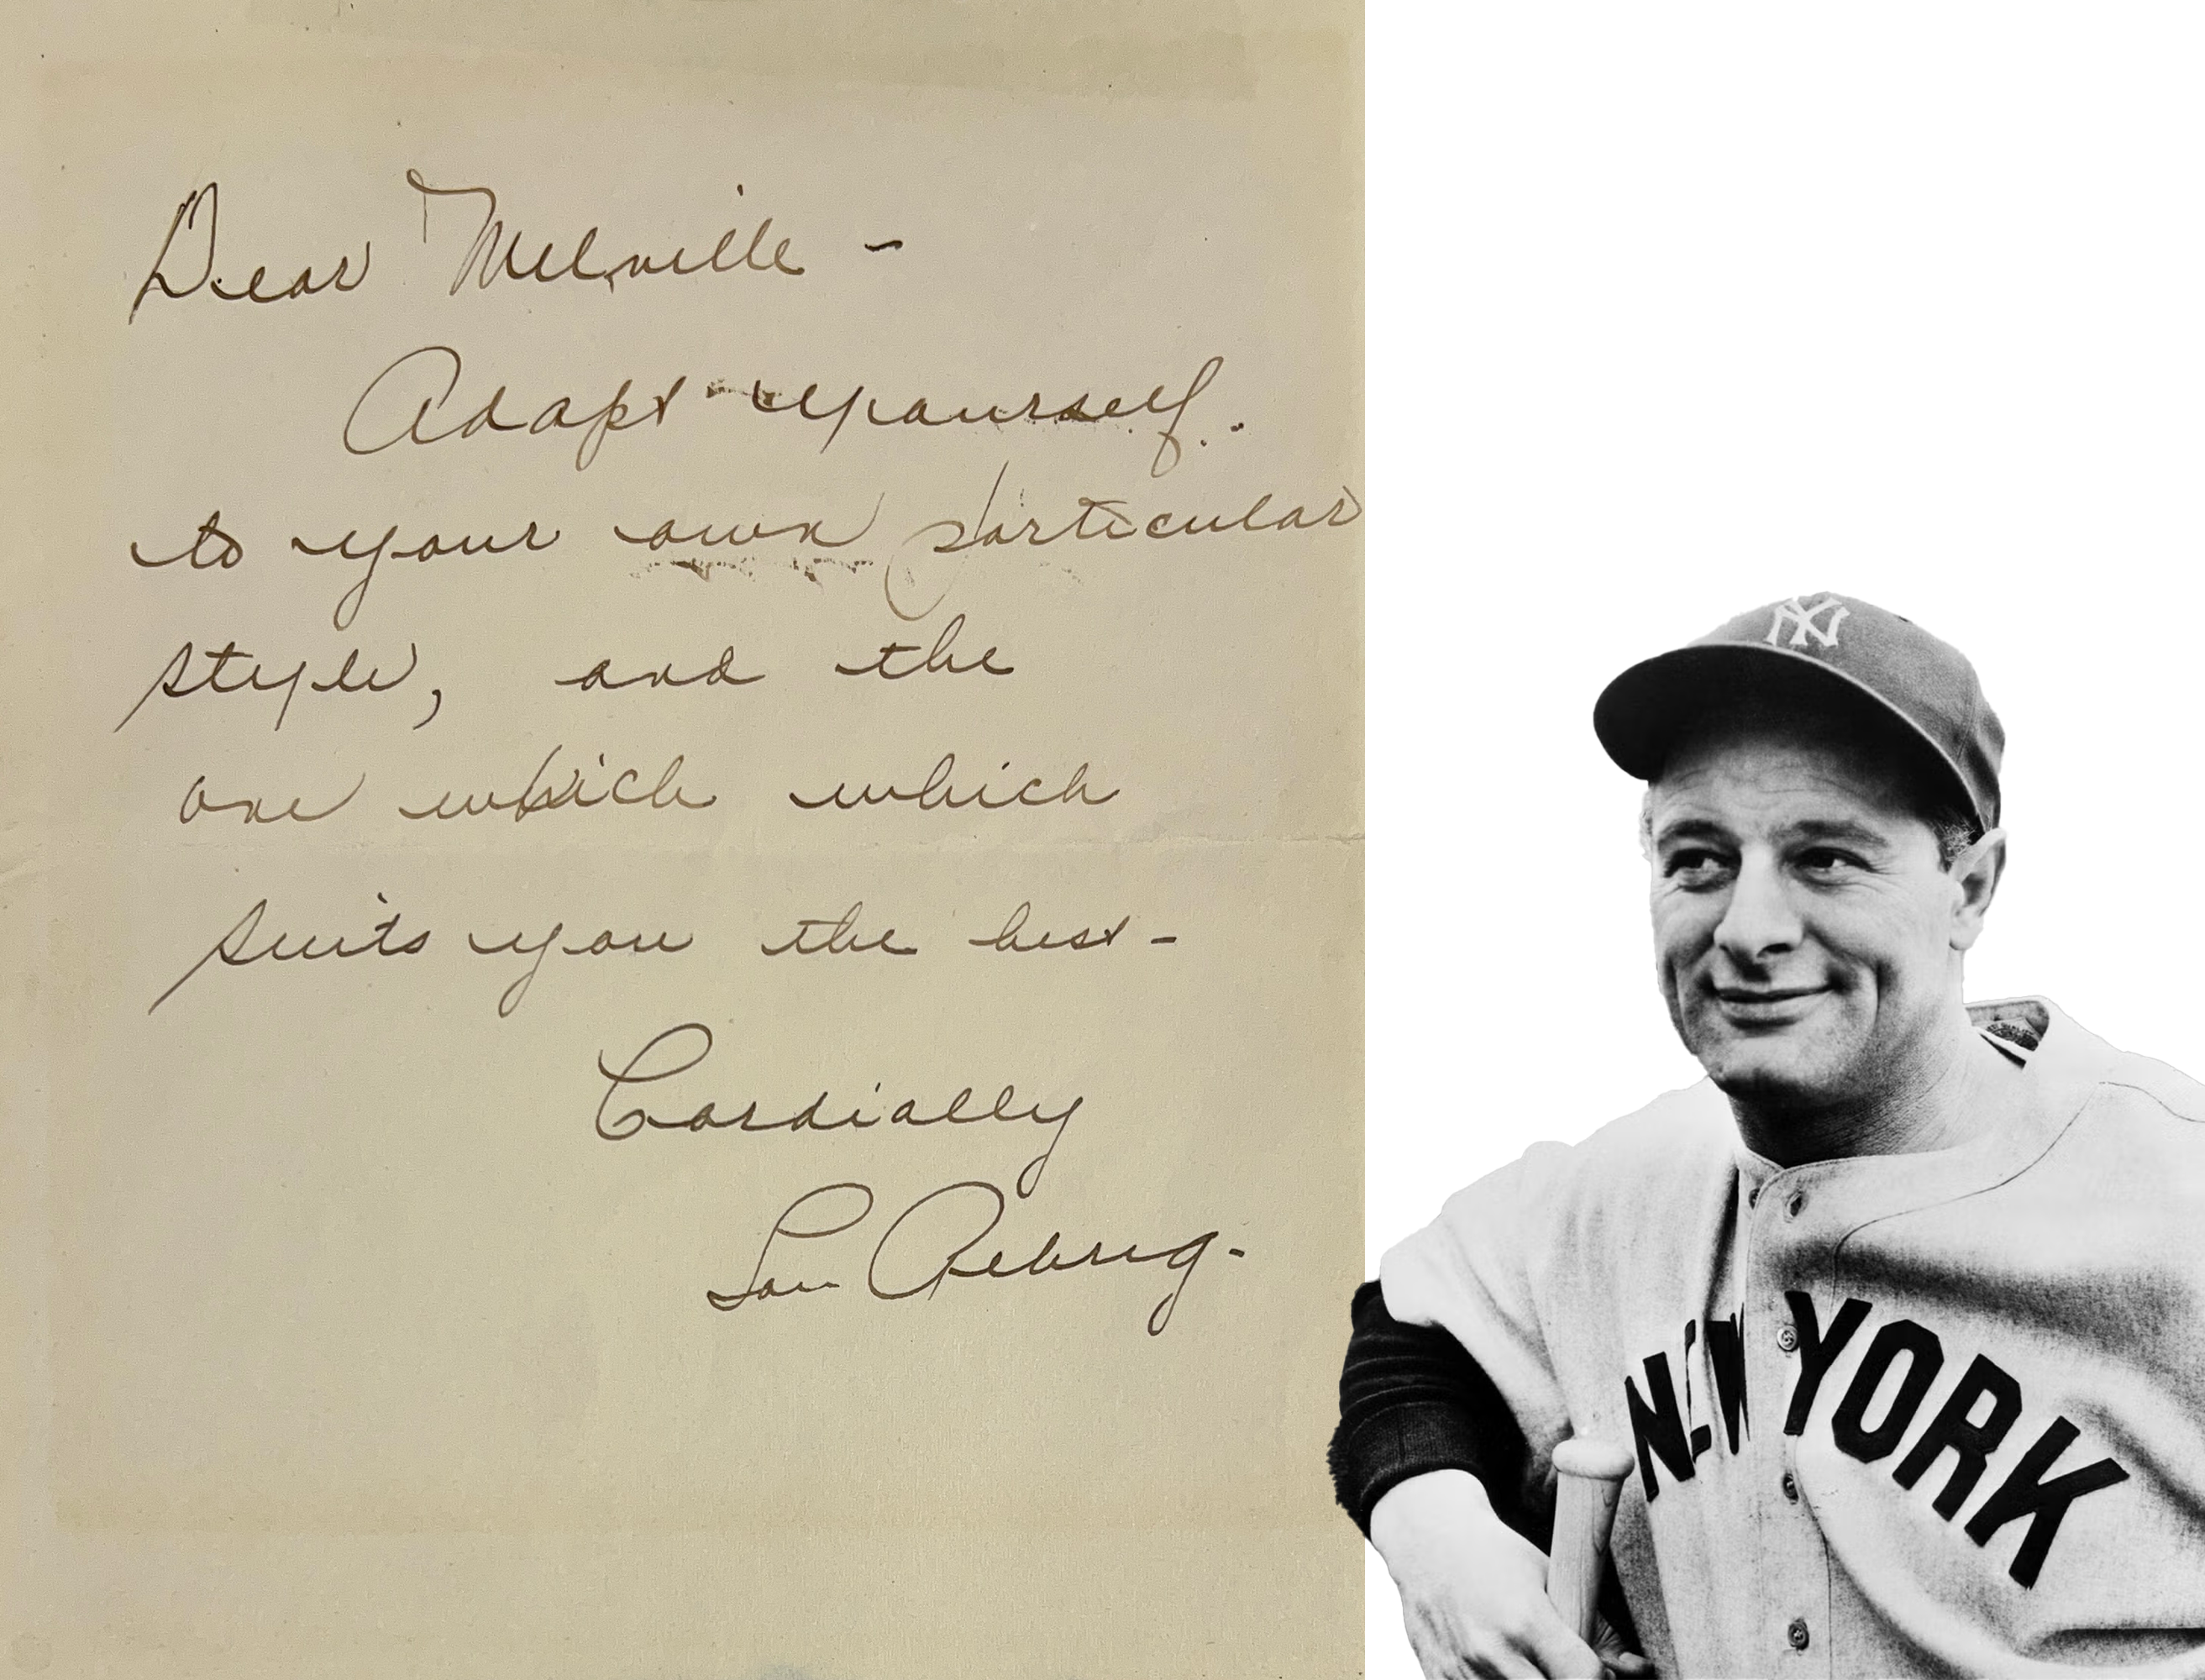 Dear Melville -
Adapt yourself
to your own particular
style, and the
one which which
suits you the best -
Cordially
Lou Gehrig.
NY
NEW YORK